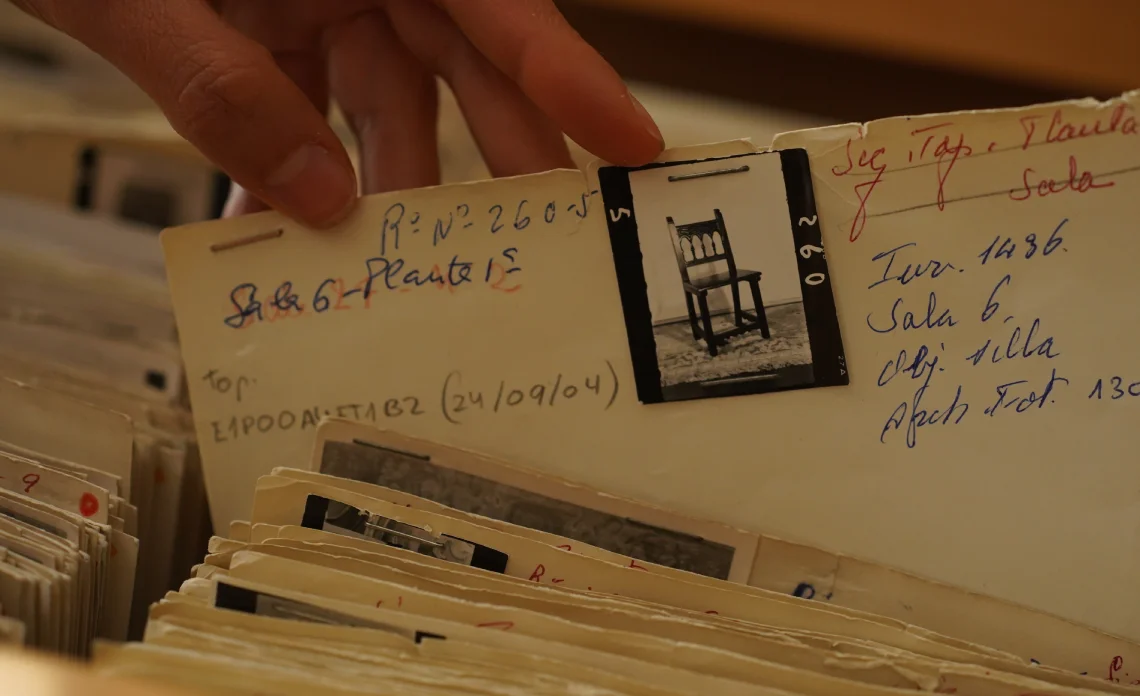 Rº Nº 260-5
Sala 6-Planta 1ª
top.
E1P00A
T1B2 (24/09/04)
5
092
Sec. Top. Planta
Sala
Inv. 1486.
Sala 6.
Obj. silla
Arch. Fot. 130
9